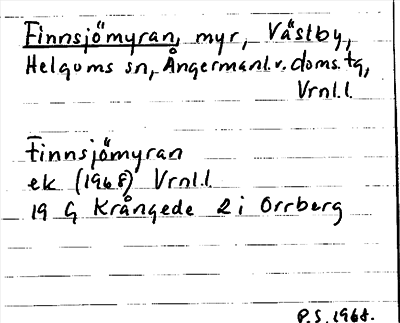 Finnsjömyran, myr, Västby,
Helgums sn, Ångermanl.v.doms.tg,
Vrnl.l.
Finnsjömyran
ek (1968) Vrnl.l.
19 G Krångede 2 i Orrberg
P.S. 1968.